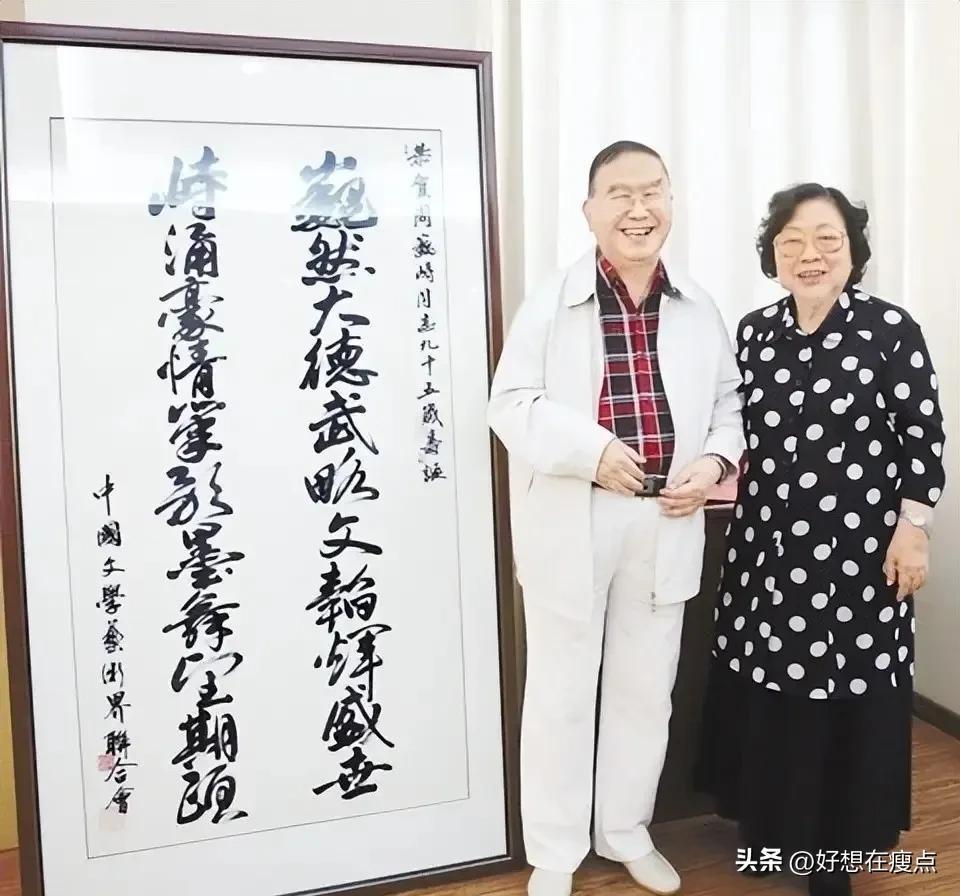 恭賀周巍峙同志九十五歲壽誕
巍然大德武略文韜輝盛世
峙涌豪情筆歌墨舞望期頤
中國文學藝術界聯合會
头条 @好想在瘦点